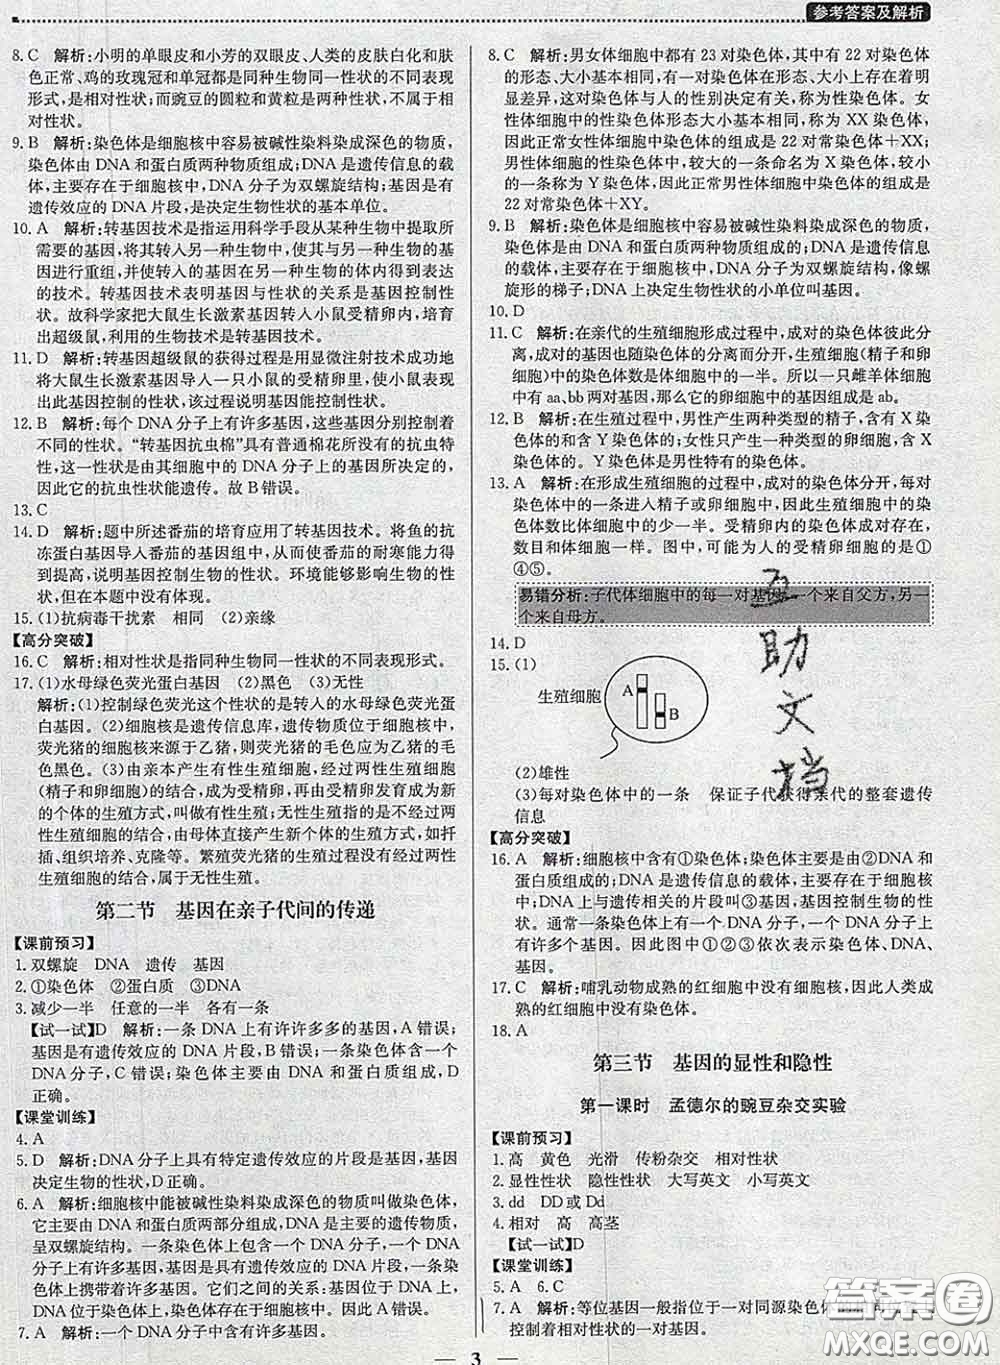 参考答案及解析
8. C　解析:小明的单眼皮和小芳的双眼皮、人类的皮肤白化和肤
色正常、鸡的玫瑰冠和单冠都是同种生物同一性状的不同表现
形式,是相对性状;而豌豆的圆粒和黄粒是两种性状,不属于相
对性状。
9. B　解析:染色体是细胞核中容易被碱性染料染成深色的物质,
染色体由 DNA 和蛋白质两种物质组成;DNA是遗传信息的载
体,主要存在于细胞核中,DNA 分子为双螺旋结构;基因是有
遗传效应的 DNA 片段,是决定生物性状的基本单位。
10. A　解析:转基因技术是指运用科学手段从某种生物中提取所
需要的基因,将其转入另一种生物中,使其与另一种生物的基
因进行重组,并使转入的基因在另一种生物的体内得到表达
的技术。转基因技术表明基因与性状的关系是基因控制性
状。故科学家把大鼠生长激素基因转入小鼠受精卵内,培育
出超级鼠,利用的生物技术是转基因技术。
11. D　解析:转基因超级鼠的获得过程是用显微注射技术成功地
将大鼠生长激素基因导入一只小鼠的受精卵里,使其表现出
出此基因控制的性状,该过程说明基因能控制性状。
12. B　解析:每个 DNA 分子上有许多基因,这些基因分别控制着
不同的性状。“转基因抗虫棉”具有普通棉花所没有的抗虫特
性,这一性状是由其细胞中的 DNA 分子上的基因所决定的,
因此它的抗虫性状能遗传。故 B 错误。
13. C
14. D　解析:题中所述番茄的培育应用了转基因技术。将鱼的抗
冻蛋白基因导入番茄的细胞中,从而使番茄的耐寒能力得到
了提高,说明基因控制生物的性状。环境能够影响生物的性
状,但在本题中没有体现。
15. (1)抗病毒干扰素　相同　(2)亲缘
【高分突破】
16. C　解析:相对性状是指同种生物同一性状的不同表现形式。
17. (1)水母绿色荧光蛋白基因　(2)黑色　(3)无性
解析:(1)控制绿色荧光这个性状的是转入的水母绿色荧光蛋
白基因。(2)细胞核是遗传信息库,遗传物质位于细胞核中,
荧光猪的细胞核来源于乙猪,则荧光猪的毛色应为乙猪的毛
色黑色。(3)由亲本产生有性生殖细胞,经过两性生殖细胞
(精子和卵细胞)的结合,成为受精卵,再由受精卵发育成为新
的个体的生殖方式,叫做有性生殖。而无性生殖是不经过两
性生殖细胞的结合,由母体直接产生新个体的生殖方式,如扦
插、组织培养、克隆等。繁殖荧光猪的生殖过程没有经过两性
生殖细胞的结合,属于无性生殖。
第二节　基因在亲子代间的传递
【课前预习】
1. 双螺旋　DNA　遗传　基因
2. ①染色体　②蛋白质　③DNA
3. 减少一半　任意的一半　各有一条
【试一试】D　解析:一条 DNA 上有许许多多的基因,A 错误;
基因是有遗传效应的 DNA 片段,B 错误;一条染色体含有一
个 DNA 分子,C 错误;染色体主要是由 DNA 和蛋白质组成
的,D 正确。
【课堂训练】
4. A
5. D　解析:DNA 分子上具有特定遗传效应的片段是基因,基因
决定生物的性状,D 正确。
6. A　解析:细胞核中能被碱性染料染成深色的物质叫做染色体,
它主要由 DNA 和蛋白质两部分组成,DNA 是主要的遗传物质,
呈双螺旋结构。一条染色体上包含一个 DNA 分子,一个 DNA
分子上包含有许多基因,基因是 DNA 上决定生物性状的小单
位。一条染色体上携带着许多基因。它们之间的关系:基因
位于 DNA 上,DNA 位于染色体上,染色体存在于细胞核中。
7. A　解析:一个 DNA 分子上有许多个基因。
8. C　解析:男女体细胞中都有 23 对染色体,其中有 22 对染色体
的形态、大小基本相同,有一对染色体形态、大小存在着
明显差异,这对染色体与人的性别决定有关,称为性染色体。女
性体细胞中的性染色体形态大小基本相同,称为 XX 染色体,
因此正常女性体细胞中染色体的组成是 22 对常染色体+XX;
男性体细胞的性染色体中,较大的一条命名为 X 染色体,较小
的一条称为 Y 染色体,因此正常男性体细胞中染色体的组成是
22 对常染色体+XY。
9. B　解析:染色体是细胞核中容易被碱性染料染成深色的物质,
染色体由 DNA 和蛋白质两种物质组成的;DNA 是遗传信息
的载体,主要存在于细胞核中,DNA 分子为双螺旋结构,像螺
旋形的梯子;DNA 上决定生物性状的小单位叫基因。
10. D
11. C　解析:在亲代的生殖细胞形成过程中,成对的染色体彼此分
离,成对的基因也随染色体的分离而分开,生殖细胞(精子和卵
细胞)中的染色体数是体细胞中的一半。所以一只雌羊体细胞
中有 aa、bb 两对基因,那么它的卵细胞中的基因组成是 ab。
12. B　解析:在生殖过程中,男性产生两种类型的精子,含有 X 染
色体的和含 Y 染色体的;女性只产生一种类型的卵细胞,含 X
染色体的。Y 染色体是男性特有的染色体。
13. A　解析:在形成生殖细胞的过程中,成对的染色体分开,每对染
色体中的一条进入精子或卵细胞中,因此生殖细胞中的染色
体数比体细胞中的少一半。受精卵内的染色体成对存在,
数目和体细胞一样。图中,可能为人的受精卵细胞的是①
④⑤。
易错分析:子代体细胞中的每一对基因,一个来自父方,另一
个来自母方。
14. D
15. (1)
生殖细胞
A
B
(2)雄性
(3)每对染色体中的一条　保证子代获得亲代的整套遗传
信息
【高分突破】
16. A　解析:细胞核中含有①染色体;染色体主要是由②DNA 和
蛋白质组成的,DNA 是主要的遗传物质,呈双螺旋结构。
DNA 上与遗传相关的片段叫③基因,基因控制生物的性
状。通常一条染色体上只含有一个 DNA 分子,一个 DNA 上
有许多个基因。因此图中①②③依次表示染色体、DNA、
基因。
17. C　解析:哺乳动物成熟的红细胞中没有细胞核,因此人类成
熟的红细胞中没有染色体。
18. A
第三节　基因的显性和隐性
第一课时　孟德尔的豌豆杂交实验
【课前预习】
1. 高　黄色　光滑　传粉杂交　相对性状
2. 显性性状　隐性性状　大写英文　小写英文
3. dd　DD 或 Dd
4. 相对　高　高茎
【试一试】D
【课堂训练】
5. A　6. C
7. A　解析:等位基因一般指位于一对同源染色体的相同位置上
控制着相对性状的一对基因。
互
助
文
档
答案圈
MXQE.COM
3